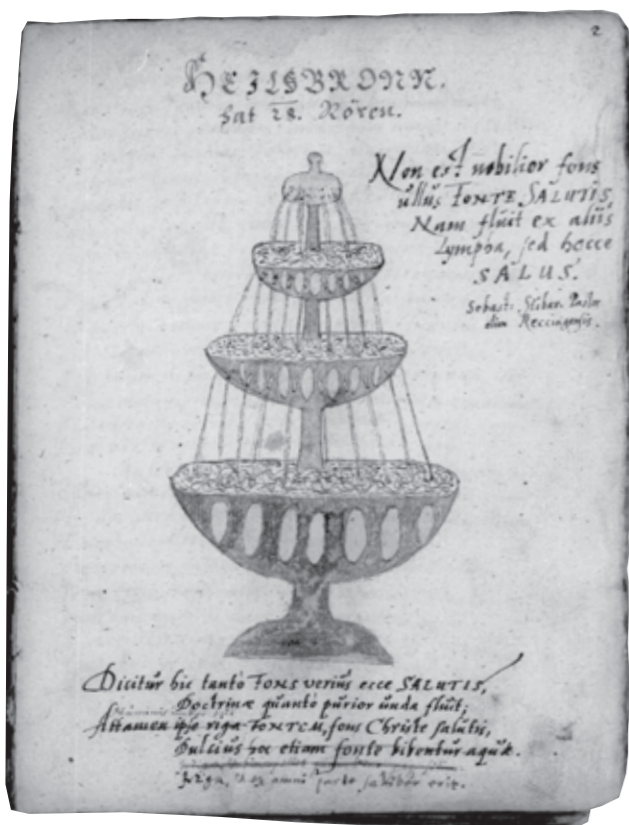 2
HEILSBRONN.
hat 28. Rören.
Non est nobilior fons
ullus FONTE SALUTIS,
Nam fluit ex aliis
Lympha, sed hocce
SALUS.
Sebast. Pastor
olim
Dicitur hic tanto FONS verius ecce SALUTIS,
Doctrinæ quanto purior unda fluit;
Attamen ipse riga FONTEM, fons Christe salutis,
Dulcius hoc etiam fonte bibentur aquæ.